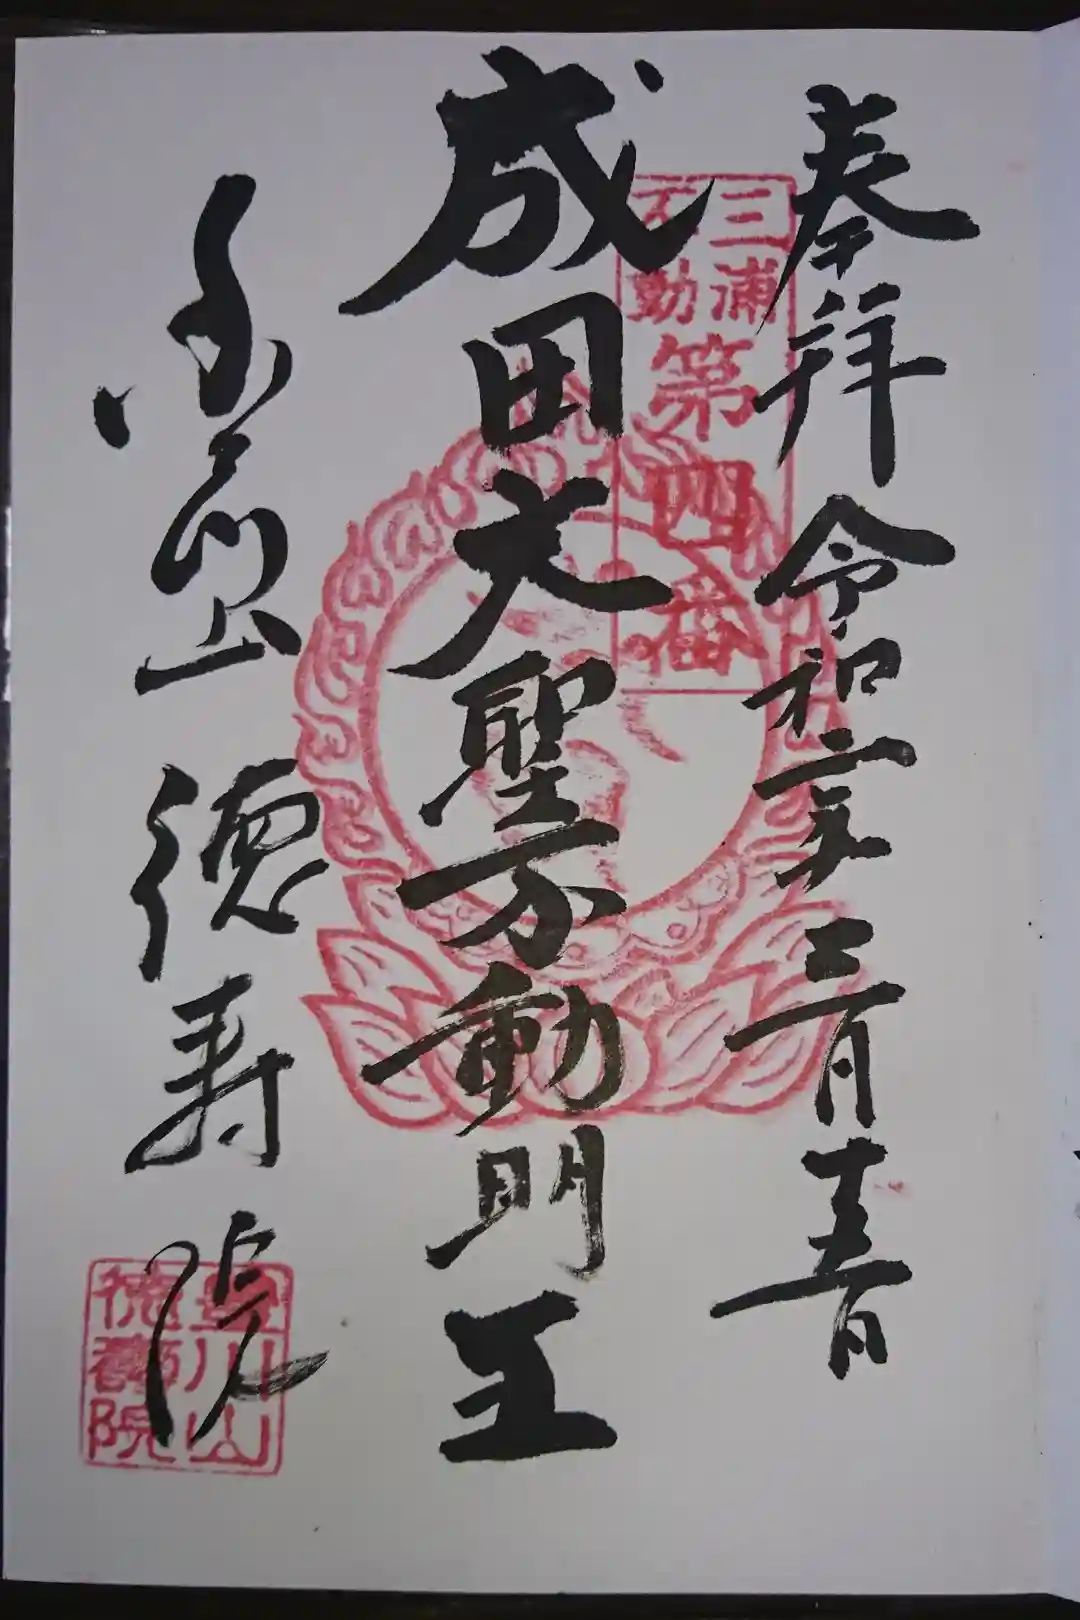 奉拝 令和二年三月十五日
三浦
不動
第四番
成田大聖不動明王
豊川山 徳寿院
豊川山
徳壽院